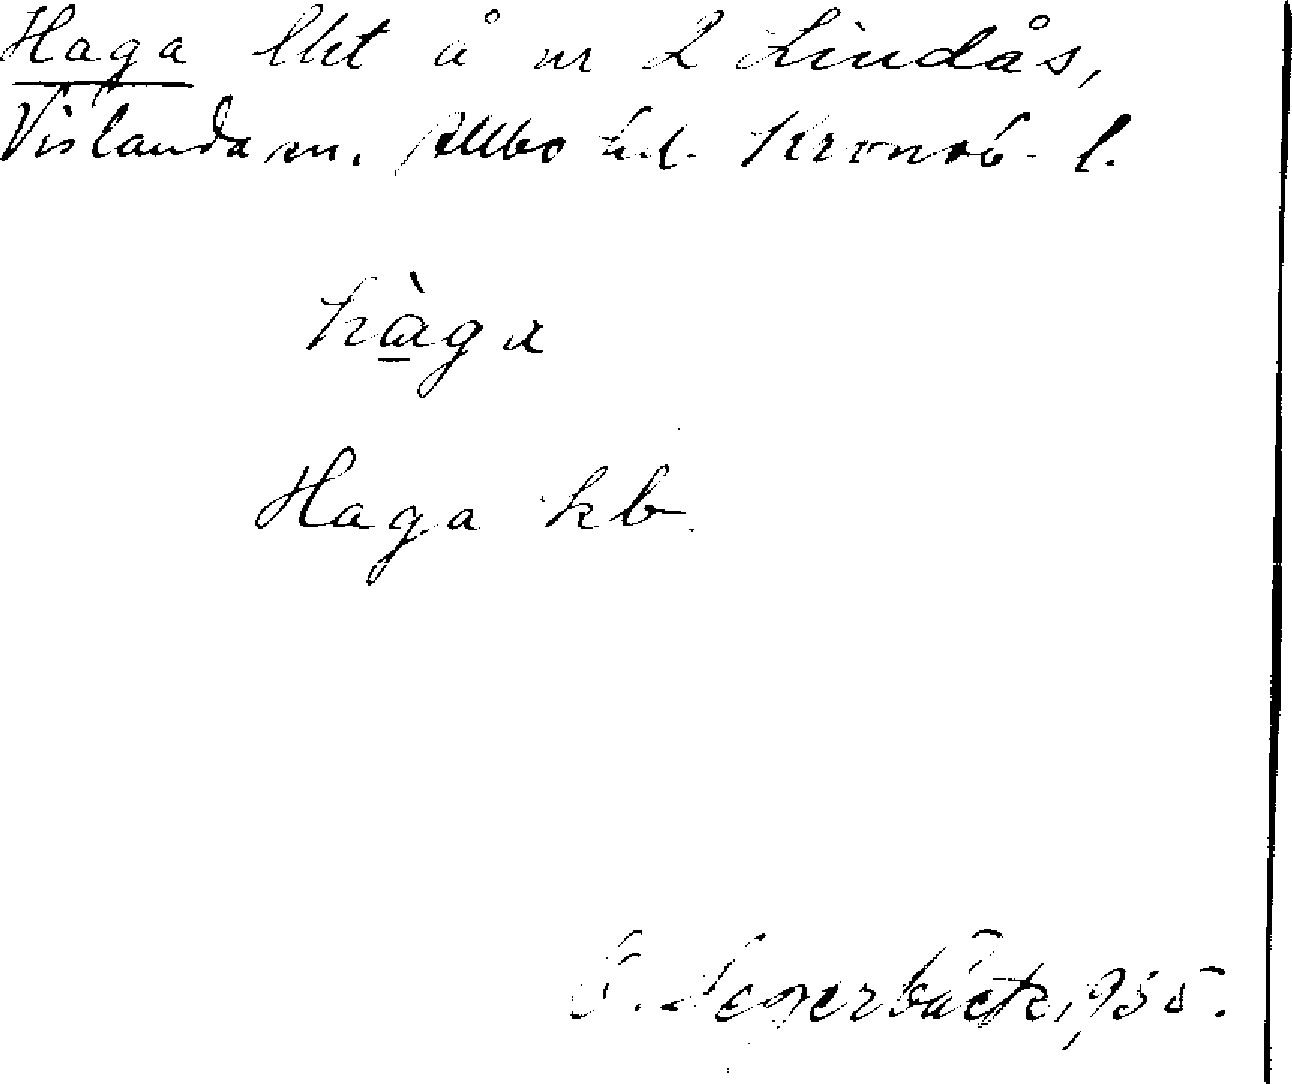 Haga lht å nr 2 Lindås,
Vislanda sn. Allbo hd. Kronob. l.
hàga
Haga kb.
G. Segerbäck, 1955.